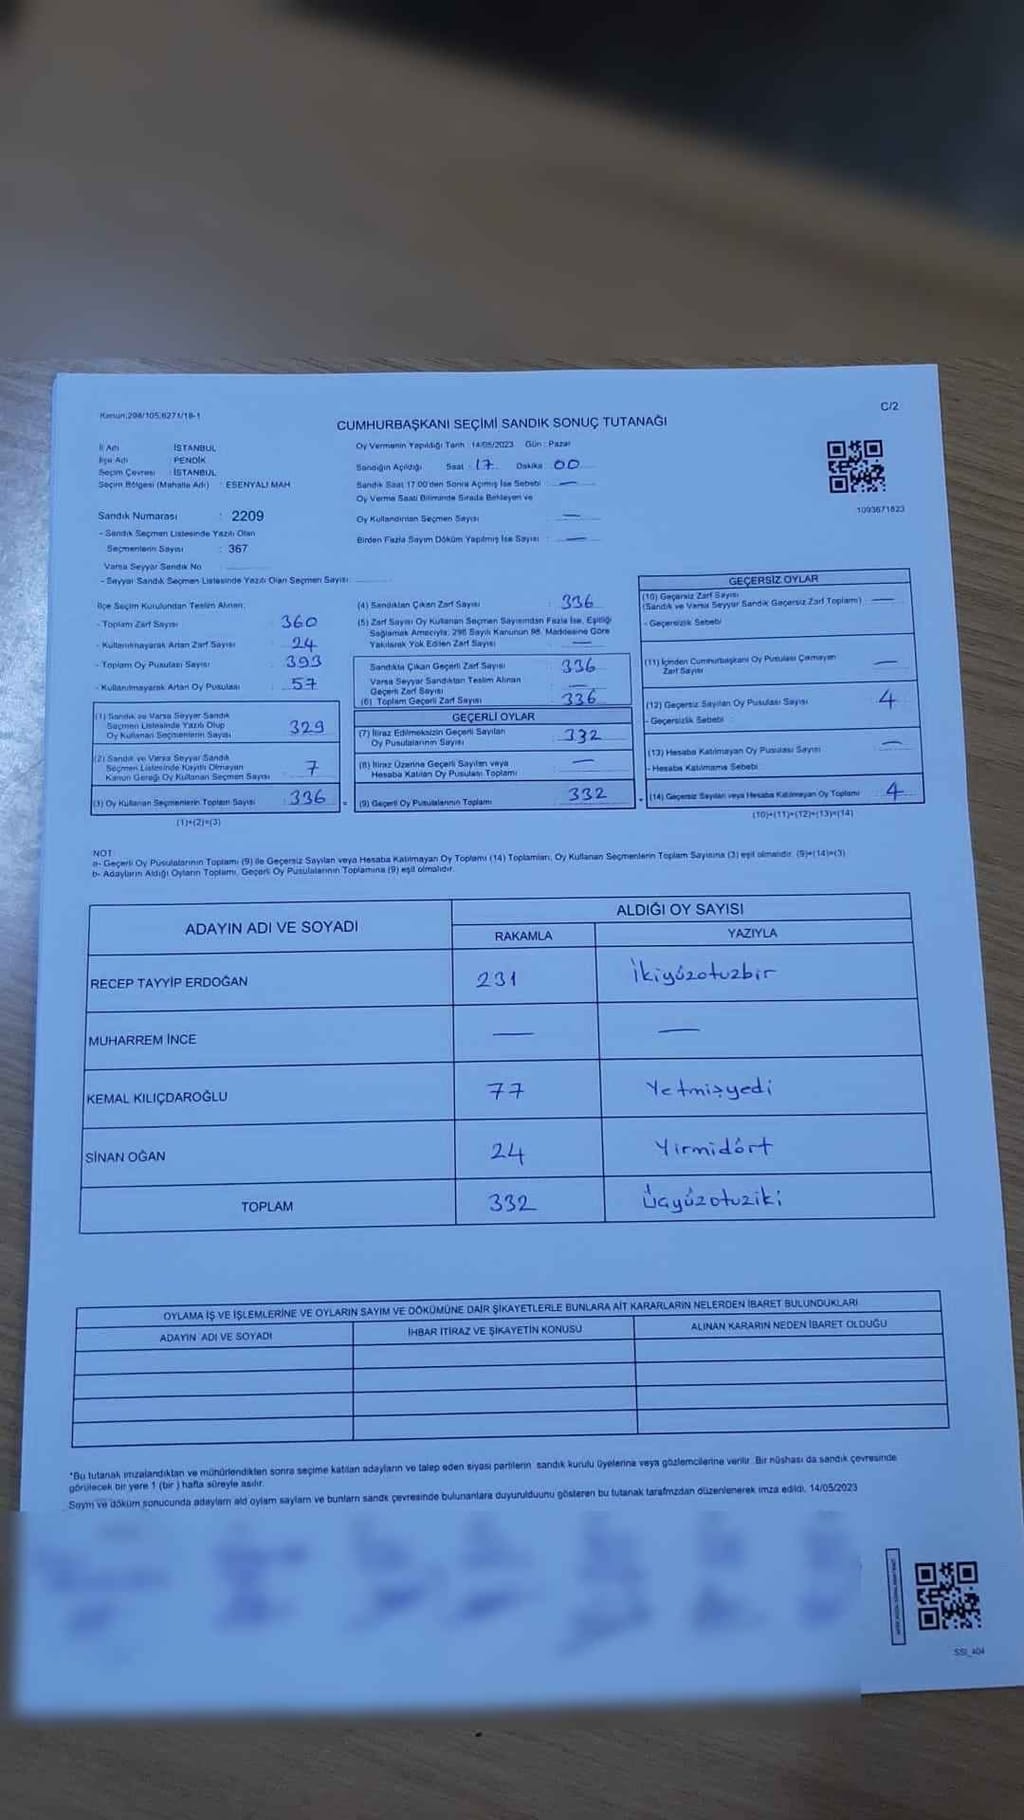 Kanun:298/105,6271/18-1
C/2
CUMHURBAŞKANI SEÇİMİ SANDIK SONUÇ TUTANAĞI
İl Adı İSTANBUL
İlçe Adı PENDİK
Seçim Çevresi : İSTANBUL
Seçim Bölgesi (Mahalle Adı) : ESENYALI MAH
Sandık Numarası : 2209
- Sandık Seçmen Listesinde Yazılı Olan
Seçmenlerin Sayısı : 367
Varsa Seyyar Sandık No
- Seyyar Sandık Seçmen Listesinde Yazılı Olan Seçmen Sayısı:
Oy Vermenin Yapıldığı Tarih : 14/05/2023 Gün : Pazar
Sandığın Açıldığı Saat : 17 Dakika : 00
Sandık Saat 17:00'den Sonra Açımış İse Sebebi : —
Oy Verme Saati Bitiminde Sırada Bekleyen ve
Oy Kullandırılan Seçmen Sayısı : —
Birden Fazla Sayım Döküm Yapılmış İse Sayısı : —
1093671823
İlçe Seçim Kurulundan Teslim Alınan;
- Toplam Zarf Sayısı : 360
- Kullanılmayarak Artan Zarf Sayısı : 24
- Toplam Oy Pusulası Sayısı : 393
- Kullanılmayarak Artan Oy Pusulası : 57
(1) Sandık ve Varsa Seyyar Sandık
Seçmen Listesinde Yazılı Olup
Oy Kullanan Seçmenlerin Sayısı 329
(2) Sandık ve Varsa Seyyar Sandık
Seçmen Listesinde Kayıtlı Olmayan
Kanun Gereği Oy Kullanan Seçmen Sayısı 7
(3) Oy Kullanan Seçmenlerin Toplam Sayısı 336
(1)+(2)=(3)
(4) Sandıktan Çıkan Zarf Sayısı : 336
(5) Zarf Sayısı Oy Kullanan Seçmen Sayısından Fazla İse, Eşitliği
Sağlamak Amacıyla, 298 Sayılı Kanunun 98. Maddesine Göre
Yakılarak Yok Edilen Zarf Sayısı : —
Sandıkta Çıkan Geçerli Zarf Sayısı 336
Varsa Seyyar Sandıktan Teslim Alınan
Geçerli Zarf Sayısı —
(6) Toplam Geçerli Zarf Sayısı 336
GEÇERLİ OYLAR
(7) İtiraz Edilmeksizin Geçerli Sayılan
Oy Pusulalarının Sayısı 332
(8) İtiraz Üzerine Geçerli Sayılan veya
Hesaba Katılan Oy Pusulası Toplamı —
(9) Geçerli Oy Pusulalarının Toplamı 332
GEÇERSİZ OYLAR
(10) Geçersiz Zarf Sayısı
(Sandık ve Varsa Seyyar Sandık Geçersiz Zarf Toplamı) —
- Geçersizlik Sebebi
(11) İçinden Cumhurbaşkanı Oy Pusulası Çıkmayan
Zarf Sayısı —
(12) Geçersiz Sayılan Oy Pusulası Sayısı 4
- Geçersizlik Sebebi
(13) Hesaba Katılmayan Oy Pusulası Sayısı —
- Hesaba Katılmama Sebebi
(14) Geçersiz Sayılan veya Hesaba Katılmayan Oy Toplamı 4
(10)+(11)+(12)+(13)=(14)
NOT:
a- Geçerli Oy Pusulalarının Toplamı (9) ile Geçersiz Sayılan veya Hesaba Katılmayan Oy Toplamı (14) Toplamları, Oy Kullanan Seçmenlerin Toplam Sayısına (3) eşit olmalıdır. (9)+(14)=(3)
b- Adayların Aldığı Oyların Toplamı, Geçerli Oy Pusulalarının Toplamına (9) eşit olmalıdır.
ADAYIN ADI VE SOYADI ALDIĞI OY SAYISI
RAKAMLA YAZIYLA
RECEP TAYYİP ERDOĞAN 231 İkiyüzotuzbir
MUHARREM İNCE — —
KEMAL KILIÇDAROĞLU 77 Yetmişyedi
SİNAN OĞAN 24 Yirmidört
TOPLAM 332 Üçyüzotuziki
OYLAMA İŞ VE İŞLEMLERİNE VE OYLARIN SAYIM VE DÖKÜMÜNE DAİR ŞİKAYETLERLE BUNLARA AİT KARARLARIN NELERDEN İBARET BULUNDUKLARI
ADAYIN ADI VE SOYADI İHBAR İTİRAZ VE ŞİKAYETİN KONUSU ALINAN KARARIN NEDEN İBARET OLDUĞU
*Bu tutanak imzalandıktan ve mühürlendikten sonra seçime katılan adayların ve talep eden siyasi partilerin sandık kurulu üyelerine veya gözlemcilerine verilir. Bir nüshası da sandık çevresinde
görülecek bir yere 1 (bir ) hafta süreyle asılır.
Sayım ve döküm sonucunda adayların ald oyların sayıların ve bunların sandk çevresinde bulunanlara duyurulduunu gösteren bu tutanak tarafmzdan düzenlenerek imza edildi. 14/05/2023
SSI_404